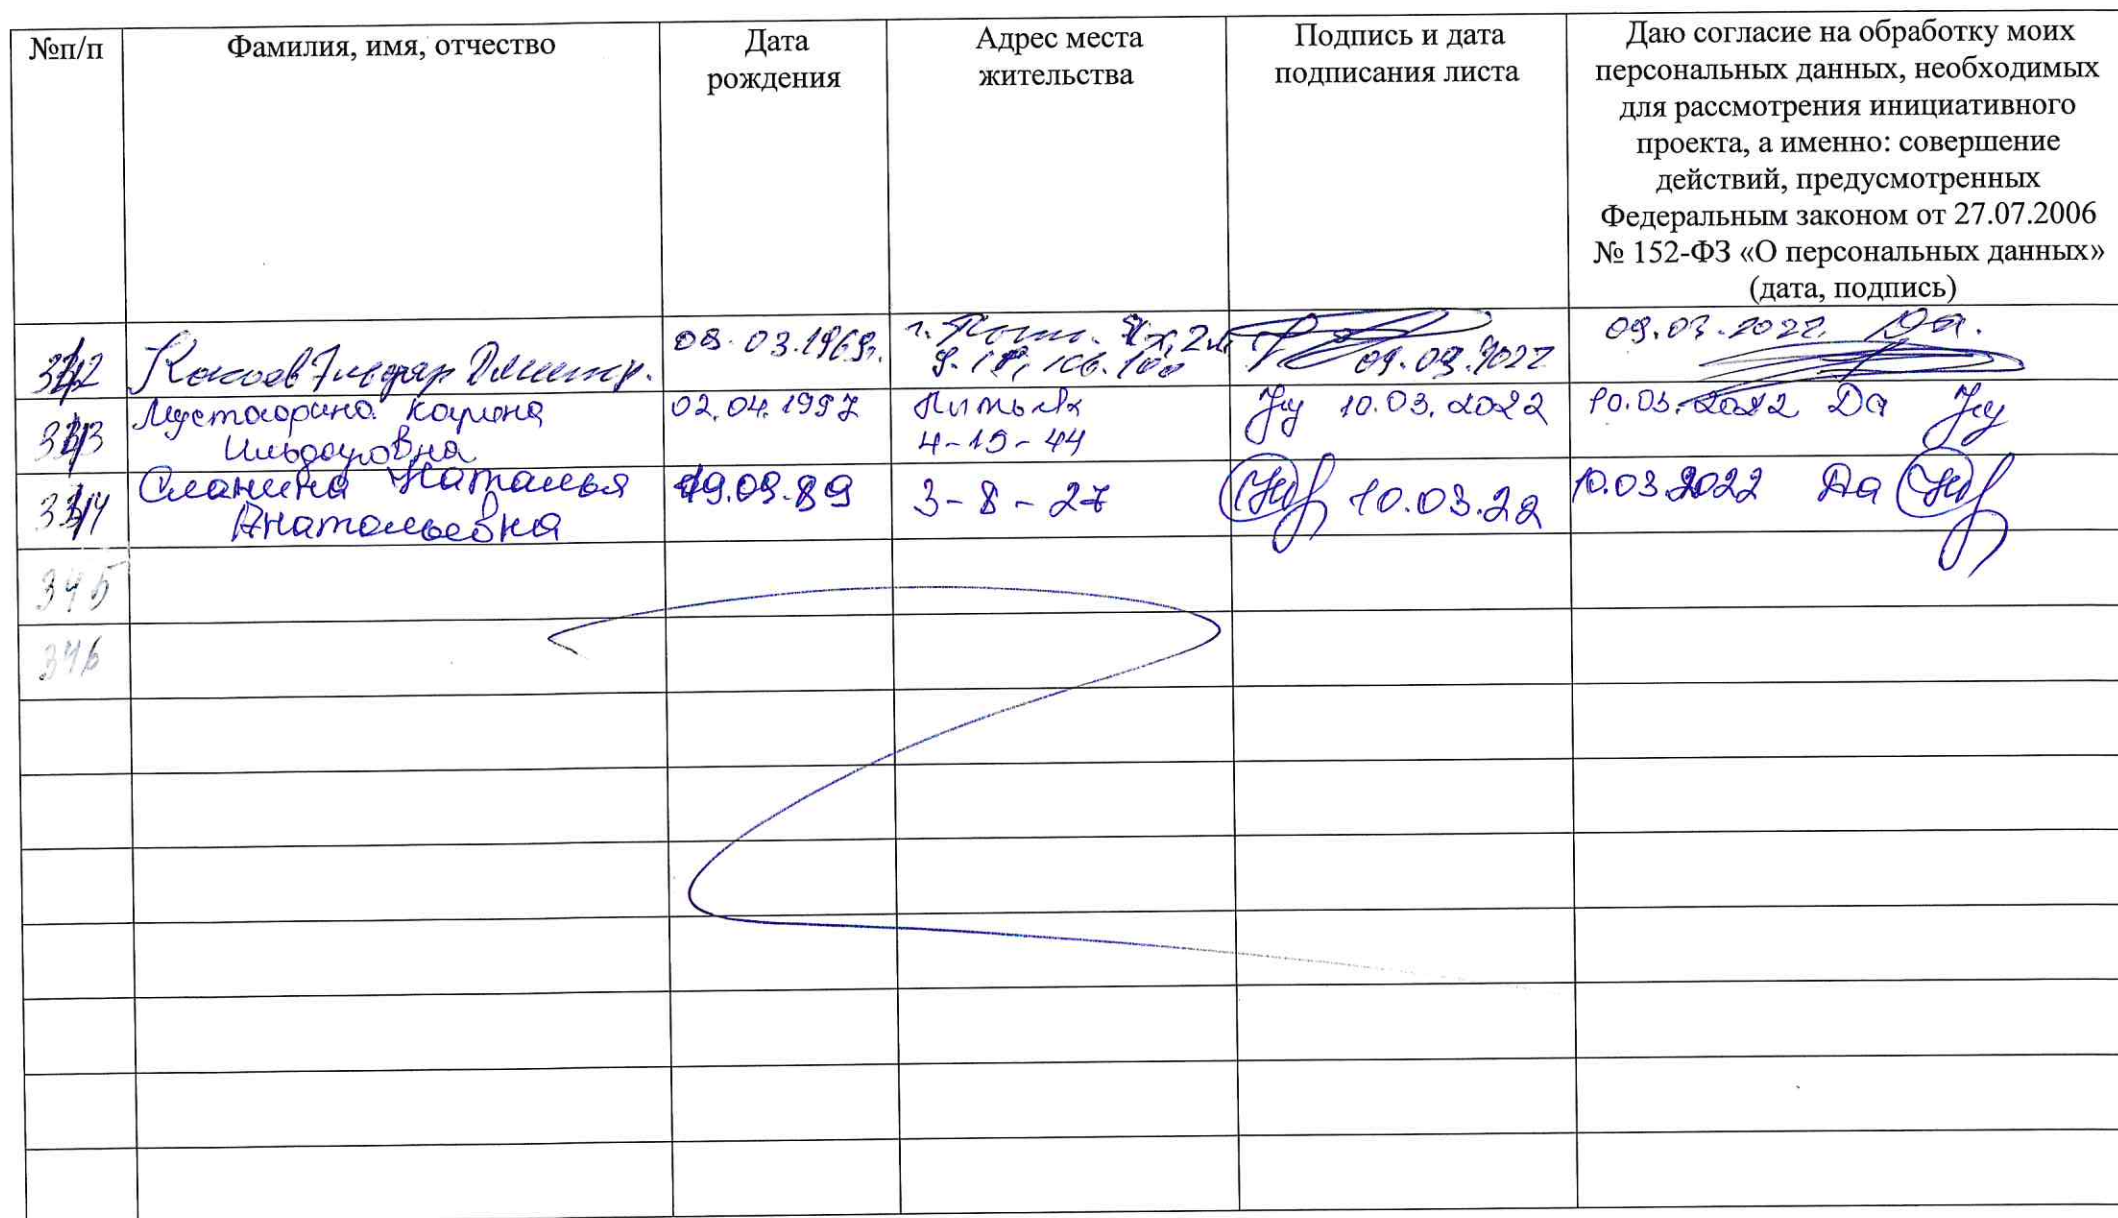 №п/п
Фамилия, имя, отчество
Дата
рождения
Адрес места
жительства
Подпись и дата
подписания листа
Даю согласие на обработку моих
персональных данных, необходимых
для рассмотрения инициативного
проекта, а именно: совершение
действий, предусмотренных
Федеральным законом от 27.07.2006
№ 152-ФЗ «О персональных данных»
(дата, подпись)
342
08.03.1969г.
09.03.2022
09.03.2022 Да.
343
Карина
02.04.1997
4-19-44
10.03.2022
10.03.2022 Да
344
Сланина Наталья
Анатольевна
19.09.89
3-8-27
10.03.22
10.03.2022 Да
345
346